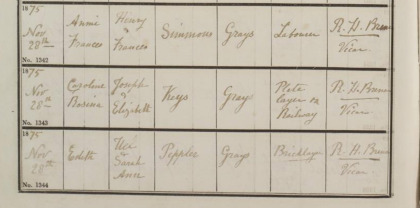 1875
Nov
28th
No. 1342
Annie
Frances
Henry
&
Frances
Simmons
Grays
Labourer
R. H.
Vicar
1875
Nov
28th
No. 1343
Caroline
Joseph
&
Elizabeth
Keys
Grays
Plate
layer on
Railway
R. H.
Vicar
1875
Nov
28th
No. 1344
Edith
&
Sarah
Ann
Peppler
Grays
Bricklayer
R. H.
Vicar